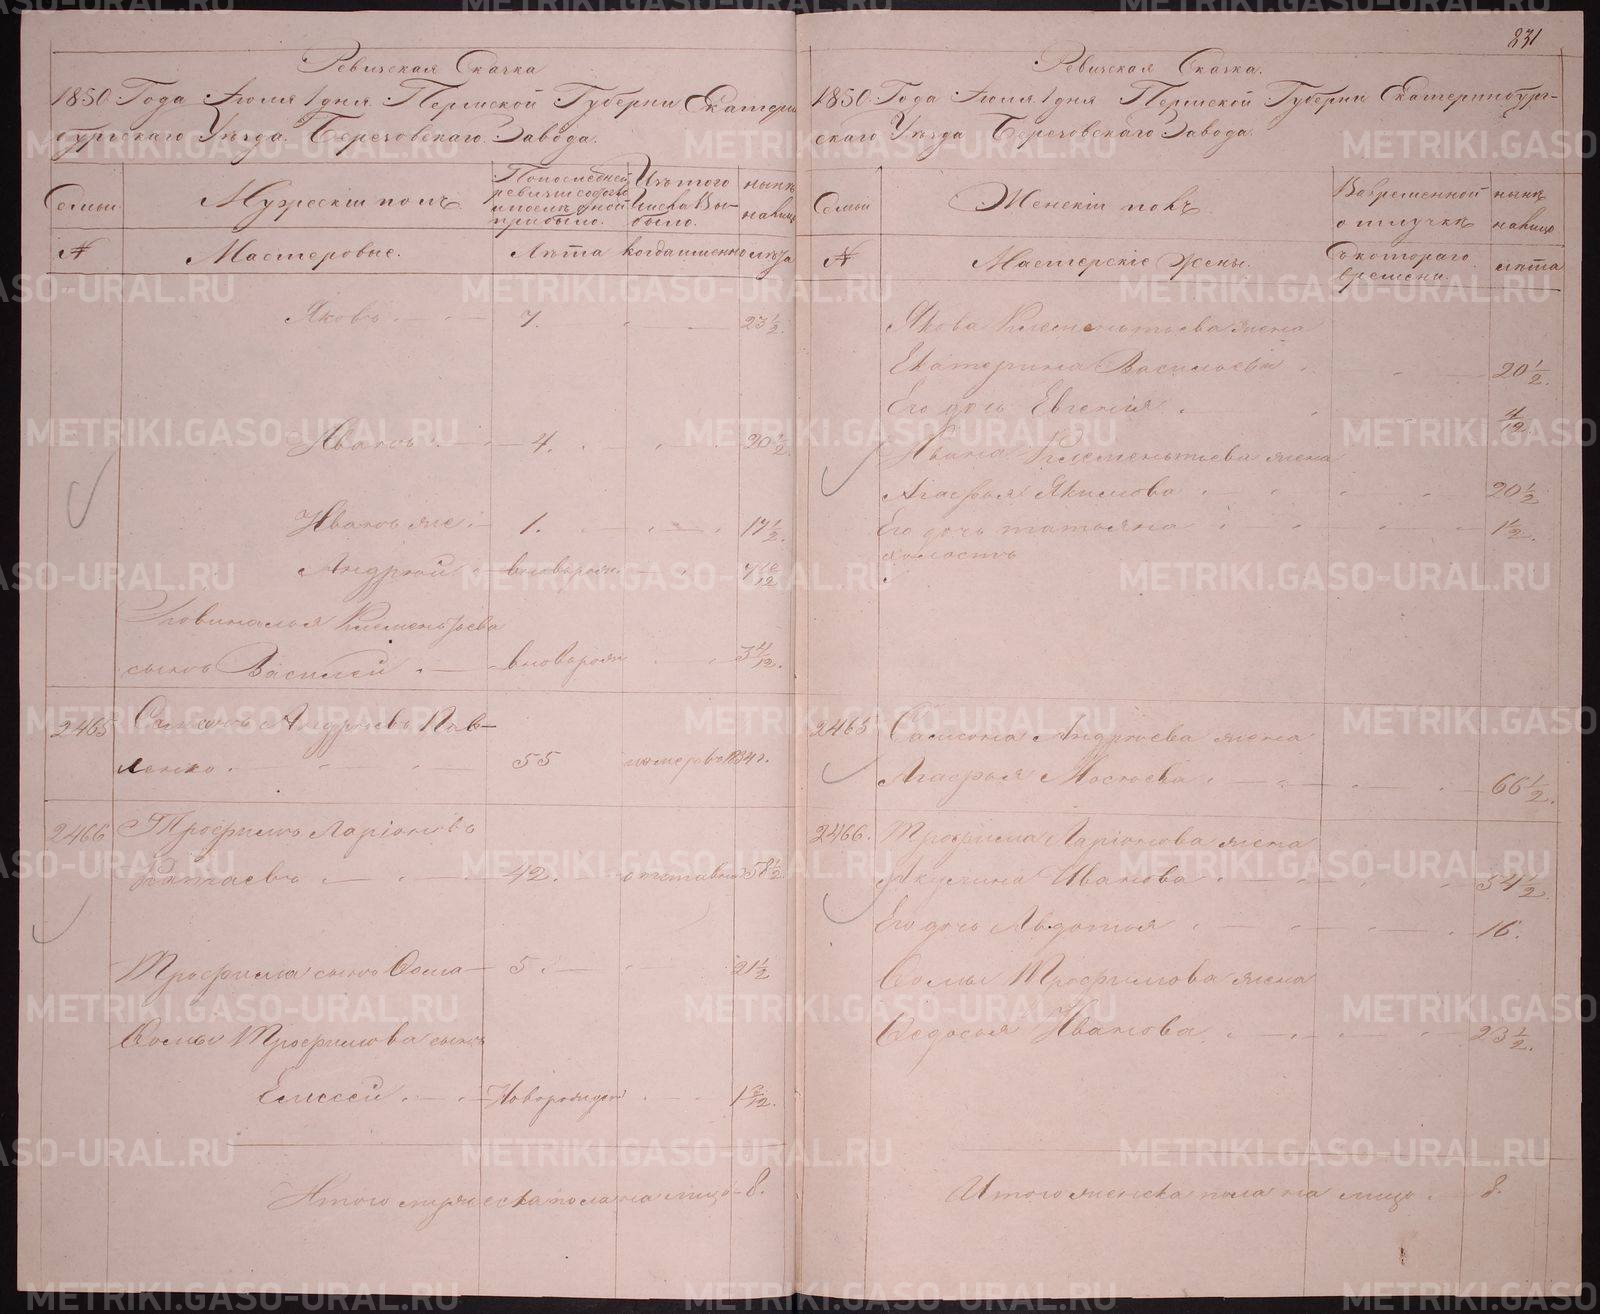 831
Ревизская Сказка
1850 Года Июля 1 дня Пермской Губерни Екатерин
бургскаго Уѣзда Березовскаго Завода.
Семьи
Мужескiй полъ
По последней
ревизии состояло
и после оной
прибыло.
Изъ того
Числа Вы-
было.
нынѣ
налицо
№
Мастеровые.
Лѣта
когда именно
лѣта
Яковъ 7. 23 1/2.
Иванъ 4. 20 1/2.
Иванъ же 1. 17 1/2.
Андрей вноворож.
Клементьева
сынъ Василей вноворож 3 4/12.
2465 Самсонъ Андреевъ Пав-
ленко 55 померъ в 1834 г.
2466 Трофимъ Ларiоновъ
42. отставн 58 1/2
Трофима сынъ Фома 5. 21 1/2
Фомы Трофимова сынъ
Елисей Новорожден 1 6/12.
Итого мужеска пола на лицо 8.
Ревизская Сказка.
1850 Года Июля 1 дня Пермской Губернии Екатеринбург-
скаго Уѣзда Березовскаго Завода.
Семьи
Женскiй полъ.
Во временной
отлучкѣ
нынѣ
налицо
№
Мастерскiе Жены.
Съ котораго
времени.
лѣта
Якова Клементьева жена
Екатерина Васильева 20 1/2.
Его дочь Евгенiя 4/12.
Ивана Клементьева жена
Агафья Якимова 20 1/2
Его дочь татьяна 1 1/2.
холостъ
2465 Самсона Андреева жена
Агафья Мосеева 66 1/2.
2466. Трофима Ларiонова жена
Акулина Иванова 54 1/2.
Его дочь Авдотья 16.
Фомы Трофимова жена
Федосья Иванова 23 1/2.
Итого женска пола на лицо 8.
METRIKI.GASO-URAL.RU